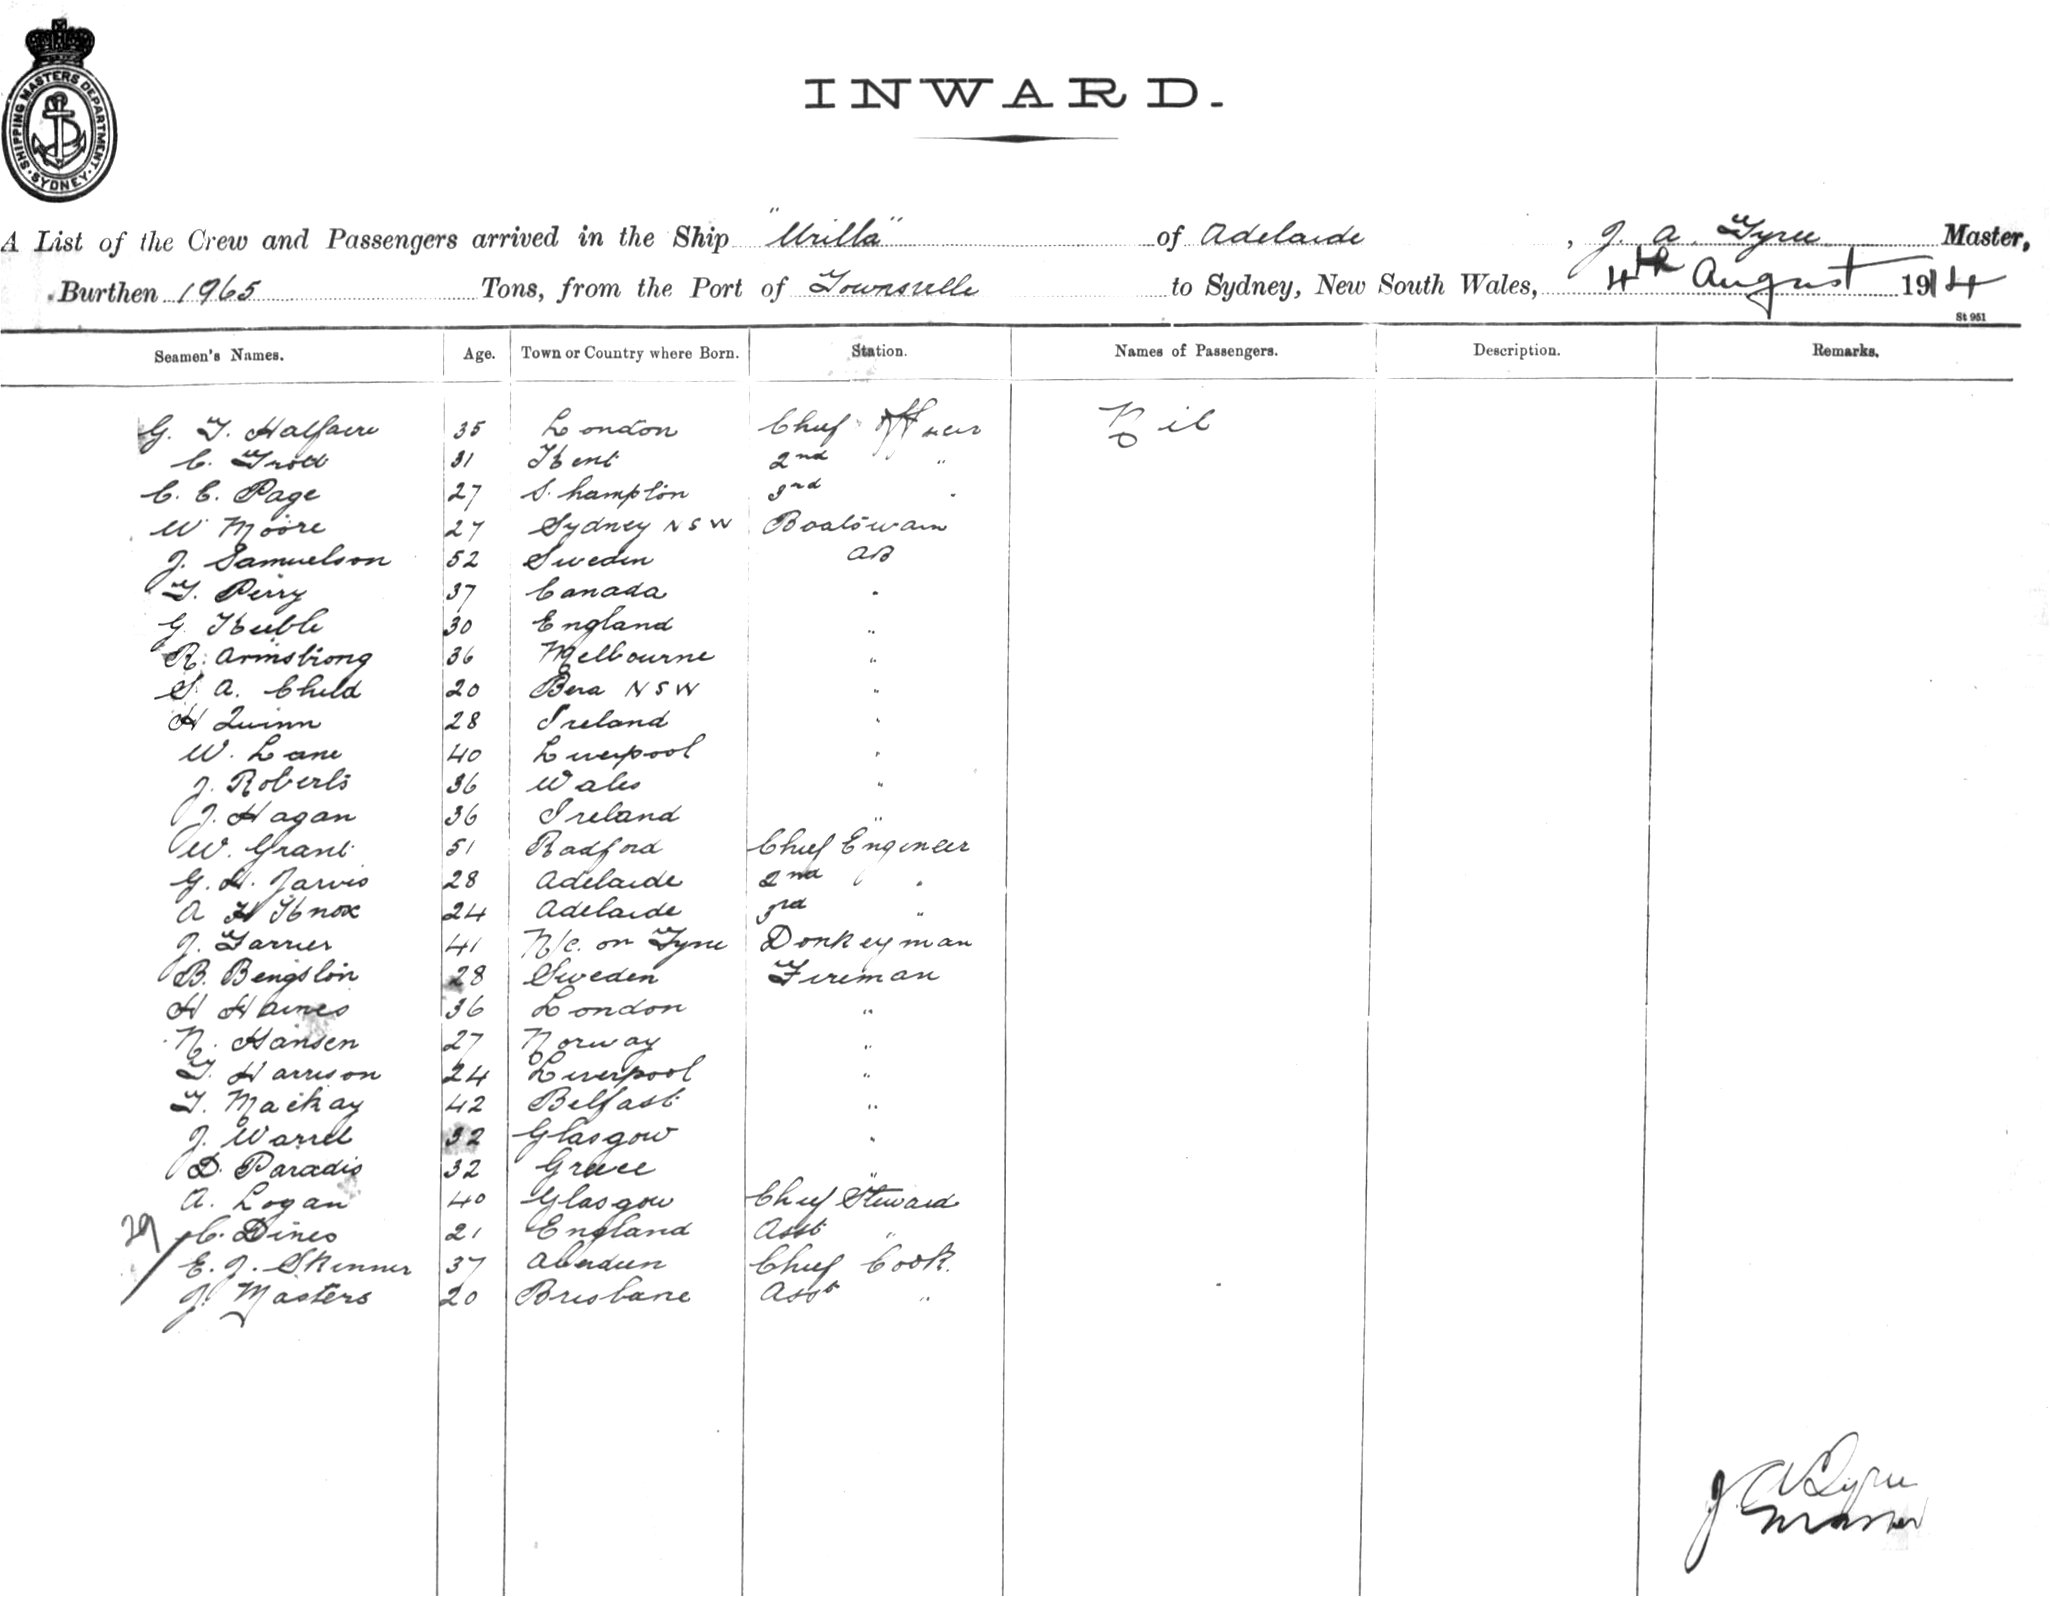 SHIPPING MASTERS DEPARTMENT
SYDNEY
INWARD.
A List of the Crew and Passengers arrived in the Ship "Urilla" of Adelaide, J. A. Tyree Master,
Burthen 1965 Tons, from the Port of Townsville to Sydney, New South Wales, 4th August 1914
St 951
Seamen's Names. Age. Town or Country where Born. Station. Names of Passengers. Description. Remarks.
G. T. Halfacre 35 London Chief Officer Nil
C. 31 Kent 2nd "
C. C. Page 27 S. hampton 3rd "
W Moore 27 Sydney NSW Boatswain
J. Samuelson 52 Sweden AB
T. Perry 37 Canada "
G Keeble 30 England "
R. Armstrong 36 Melbourne "
S. A. Child 20 NSW "
H Quinn 28 Ireland "
W. Lane 40 Liverpool "
J. Roberts 36 Wales "
J. Hagan 36 Ireland "
W. Grant 51 Radford Chief Engineer
G. H. Jarvis 28 Adelaide 2nd "
A H Knox 24 Adelaide 3rd "
J. Farrier 41 N/c. on Tyne Donkeyman
B. Bengston 28 Sweden Fireman
H Haines 36 London "
N. Hansen 27 Norway "
T. Harrison 24 Liverpool "
T. Mackay 42 Belfast "
J. 32 Glasgow "
D. Paradis 32 Greece "
A. Logan 40 Glasgow Chief Steward
29
C. Dines 21 England Asst "
E. J. Skinner 37 Aberdeen Chief Cook.
J. Masters 20 Brisbane Asst "
J A Tyree
Master